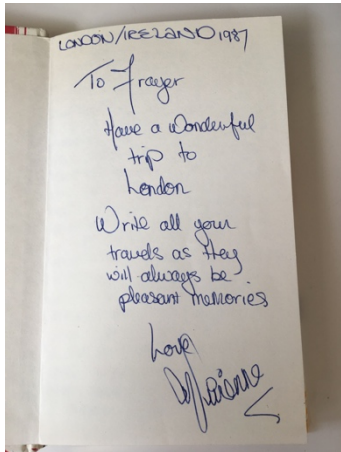 LONDON/IRELAND 1987
To Frayer
Have a Wonderful
trip to
London
Write all your
travels as they
will always be
pleasant memories
Love